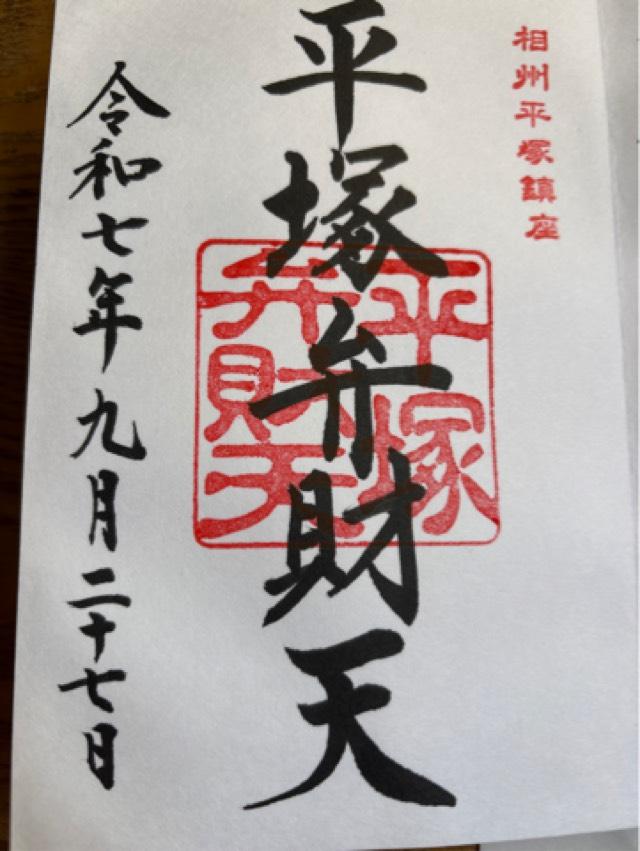 相州平塚鎮座
平塚弁財天
平塚
弁財天
令和七年九月二十七日